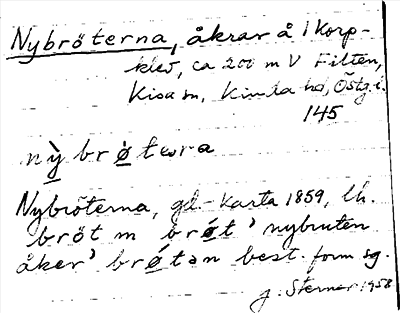 Nybröterna, åkrar å 1 Korp-
klev, ca 200 m V Filten,
Kisa sn, Kinda hd, Östg.l.
145
nỳ brø̀ tәrа
Nybröterna, gl-karta 1859, lh.
bröt m brǿt ’nybruten
åker’ brǿtәn best. form sg.
J. Sterner 1958